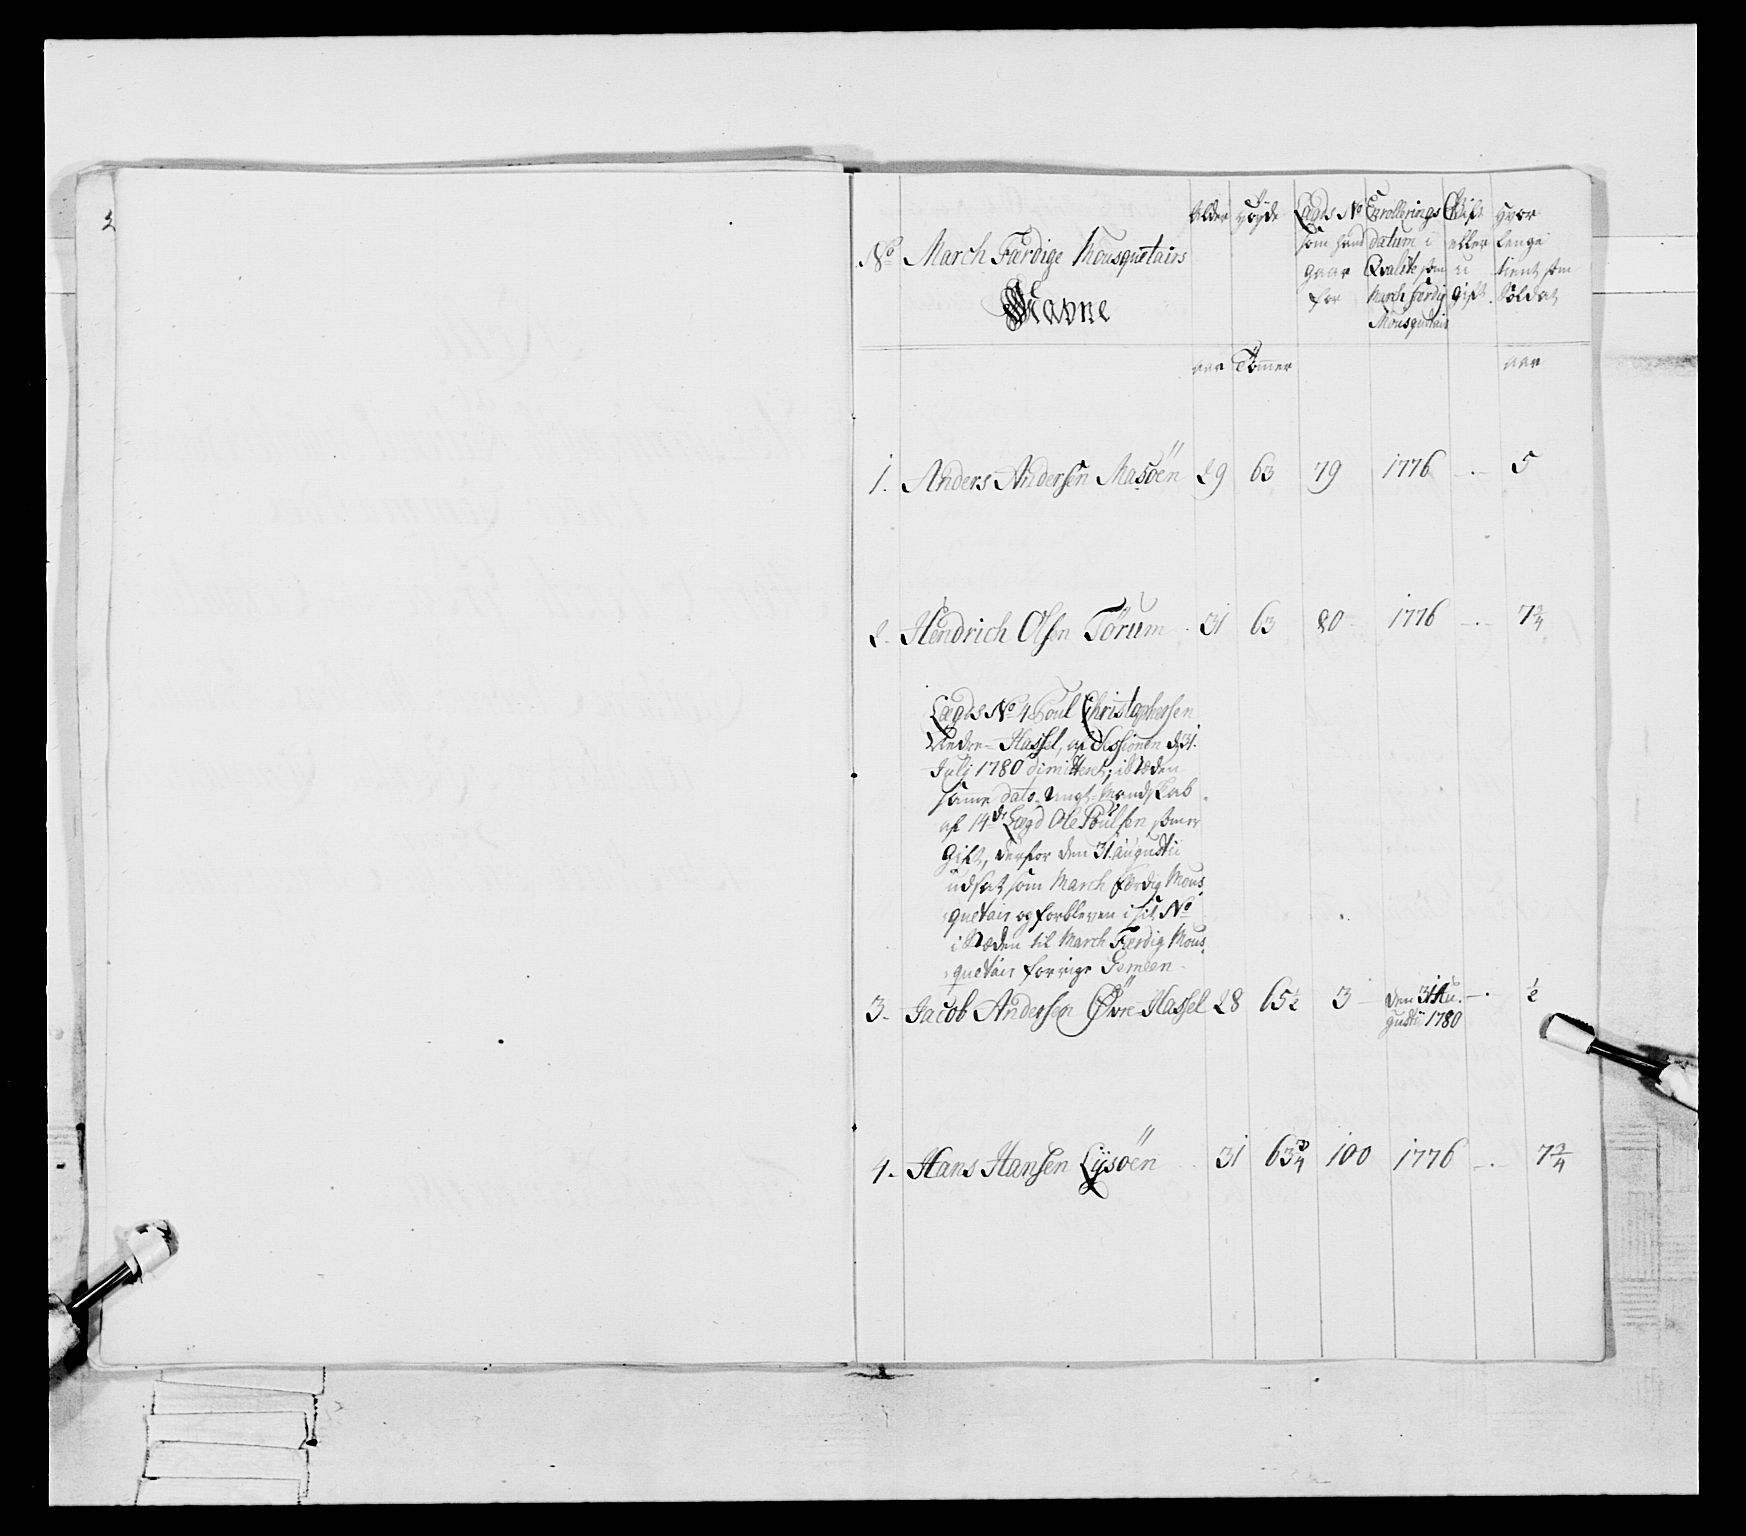 2
No March Færdige Mousquetairs
Navne
Alder
Høyde
Lægds No som hand gaar for
Enrollerings datum i Qvalite som March færdig Mousquetair
Gift eller u gift.
Hvor lenge tient som Soldat
aar Tommer aar
1. Anders Andersen Masöen 29 63 79 1776 -.- 5
2. Hendrich Olsen Törum 31 63 80 1776 -.- 7 3/4
Lægds No 4 Poul Christophersen
Nedre-Hassel, af Sessionen d 31.
Julij 1780 dimitteret, i Stæden
samme dato Ungt-Mandskab
af 14de Lægd Ole Poulsen som er
Gift, derfor den 31. augustii
udsat som March færdig Mous,
quetair og forbleven i sit No
i Stæden til March Færdig Mous,
quetair forrige Gemeen
3. Jacob Andersen Övre-Hassel 28 65 1/2 3 den 31 Au. -.- 1/2
gustii 1780
4. Hans Hansen Lysöen 31 63 3/4 100 1776 -.- 7 3/4